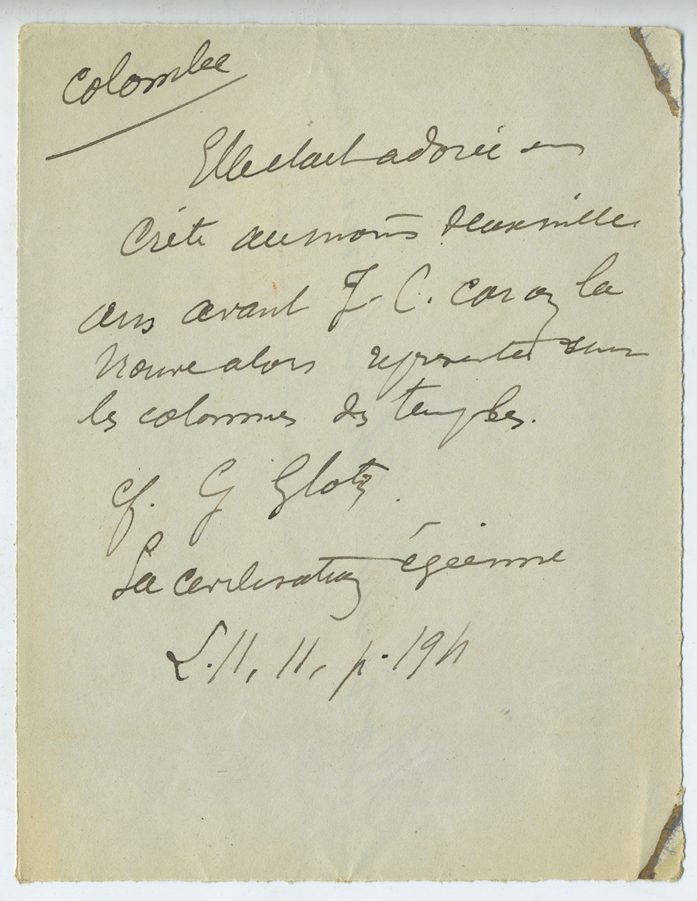 Colombe
Elle était adorée en
Crète au moins deux mille
ans avant J. C. car on la
trouve alors représentée sur
les colonnes des temples.
cf. G Glotz.
La civilisation égéenne
L. II, 11, p.